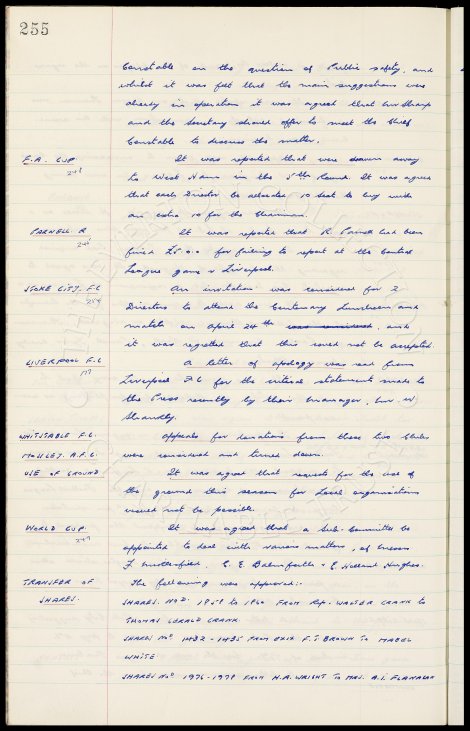 255
Constable on the question of Public safety, and
whilst it was felt that the main suggestions were
already in operation it was agreed that Mr Sharp
and the Secretary should offer to meet the Chief
Constable to discuss the matter.
F.A. CUP It was reported that were drawn away
248 to West Ham in the 5th Round. It was agreed
that each Director be allocated 10 seats to buy with
an extra 10 for the Chairman.
PARNELL R It was reported that R. Parnell had been
fined £5.0.0 for failing to report at the Central
League game v Liverpool.
STOKE CITY. F.C An invitation was considered for 2
254 Directors to attend the Centenary Luncheon and
match on April 24th was considered, and
it was regretted that this could not be accepted.
LIVERPOOL F.C A letter of apology was read from
Liverpool FC for the critical statement made to
the Press recently by their manager, Mr. W
Shankly.
WHITSTABLE F.C. Appeals for donations from these two Clubs
MOSSLEY. A.F.C. were considered and turned down.
USE OF GROUND It was agreed that requests for the use of
the ground this season for Local organisations
would not be possible.
WORLD CUP. It was agreed that a Sub-Committee be
249 appointed to deal with various matters, of Messrs
F. Micklesfield, C. E. Balmforth & E Holland Hughes.
TRANSFER OF The following was approved:-
SHARES. SHARES. Nos. 1858 to 1860 FROM Rep. WALTER CRANK to
THOMAS GERALD CRANK.
SHARES Nos 1432 - 1435 FROM EXIX F.J BROWN To MABEL
WHITE
SHARES Nos 1976-1978 FROM H.A. WRIGHT to MRS. A.I. FLANAGAN